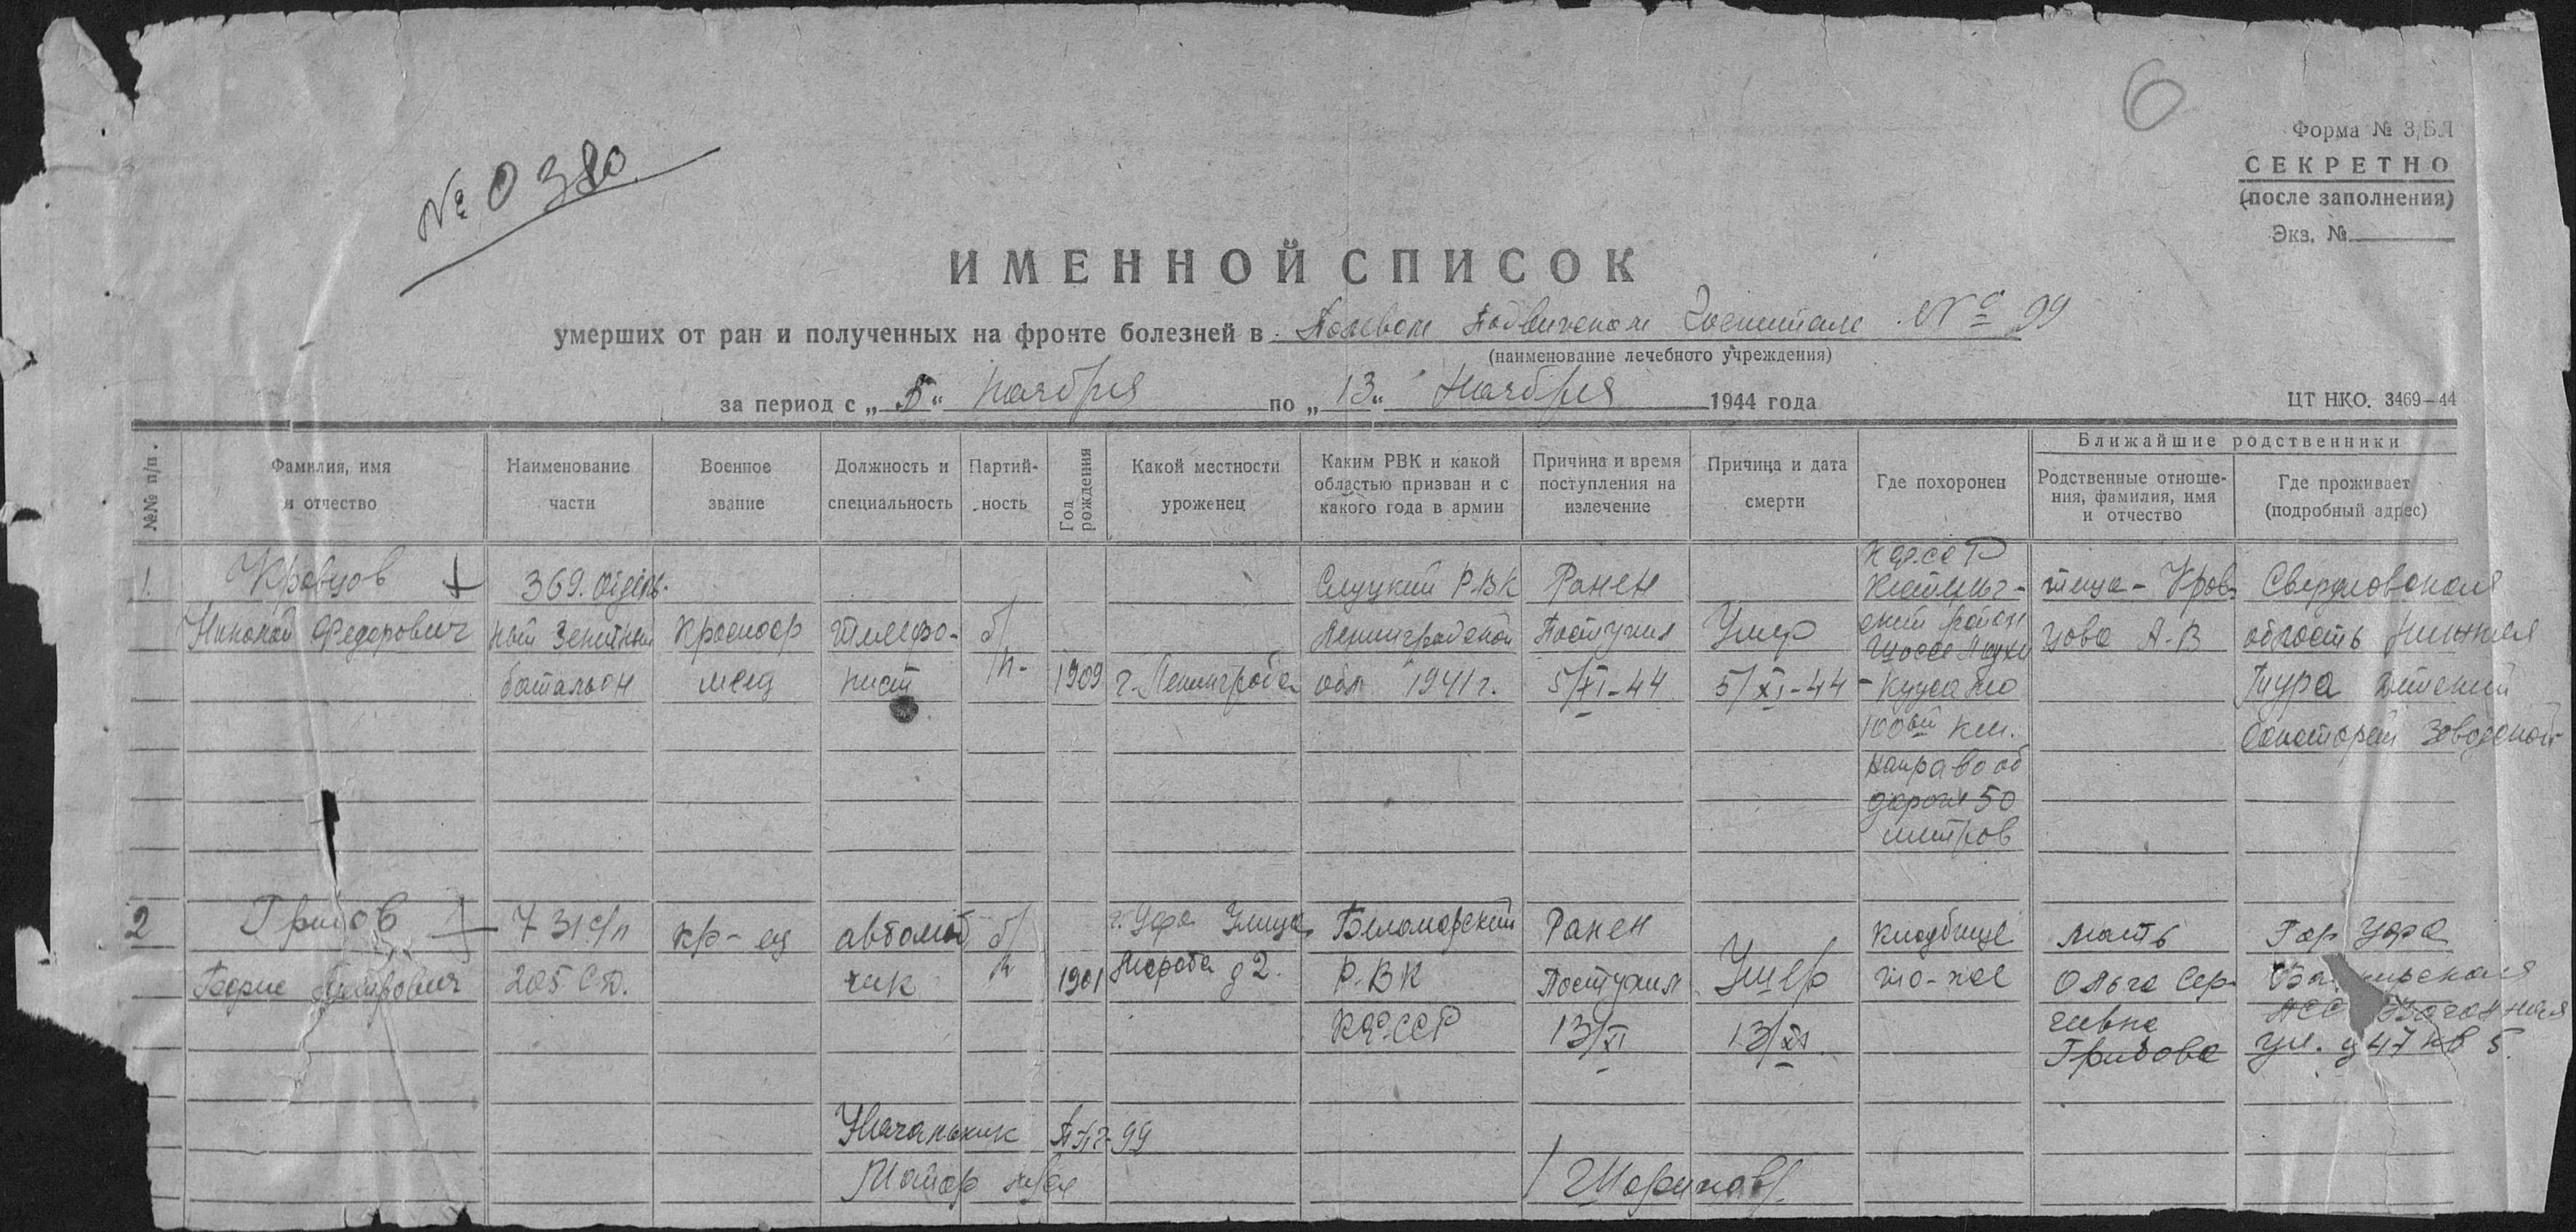 6
Форма № 3/БЛ
СЕКРЕТНО
(после заполнения)
Экз. №
№ 0380
ИМЕННОЙ СПИСОК
умерших от ран и полученных на фронте болезней в Полевом Подвижном Госпитале № 99
(наименование лечебного учреждения)
за период с „5“ Ноября по „13“ Ноября 1944 года
ЦТ НКО. 3469—44
№№ п/п.
Фамилия, имя
и отчество
Наименование
части
Военное
звание
Должность и
специальность
Партий-
ность
Год
рождения
Какой местности
уроженец
Каким РВК и какой
областью призван и с
какого года в армии
Причина и время
поступления на
излечение
Причина и дата
смерти
Где похоронен
Ближайшие родственники
Родственные отноше-
ния, фамилия, имя
и отчество
Где проживает
(подробный адрес)
1.
Кравцов
Николай Федорович
369. отдель-
ный Зенитный
батальон
Красноар
меец
телефо-
нист
б/
п-
1909
г. Ленинграда
Слуцкий РВК
Ленинградской
обл 1941 г.
Ранен
Поступил
5/XI-44
Умер
5/XI-44
КФССР
ский район
Шоссе
100ый км.
направо от
дороги 50
метров
Крав-
цова А-В
Свердловская
область Нижняя
Тура Детский
Санаторий Заводской
2
Борис Петрович
731 с/п
205 С.Д.
кр-ец
автомат
чик
б/
п
1901
г. Уфа Улица
д 2.
Беломорский
Р.В.К
КФССР
Ранен
Поступил
13/XI
Умер
13/XI.
Кладбище
то-же
Мать
Ольга Сер-
геевна
Гор Уфа
ул. д 47 кв 5.
Начальник ППГ-99
Майор